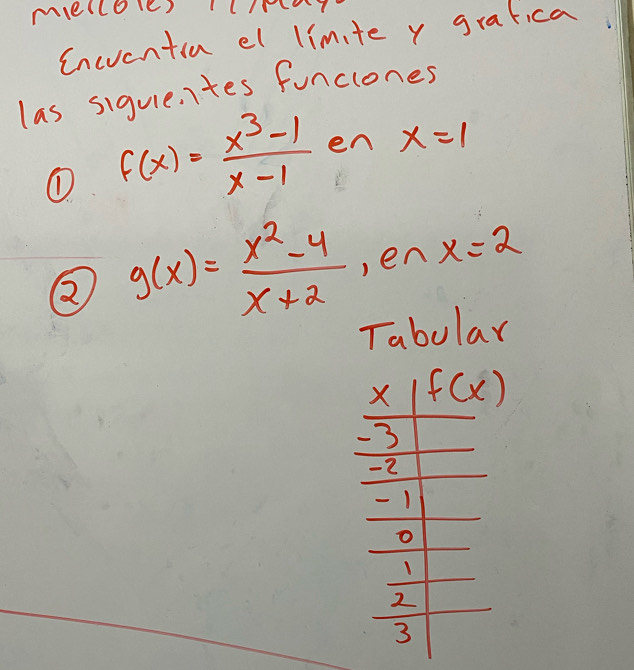 miercoles
Encuentra el límite y grafica
las siguientes funciones
① f(x) = x³-1 / x-1 en x=1
② g(x) = x²-4 / x+2, en x=2
Tabular
x | f(x)
-3
-2
-1
0
1
2
3